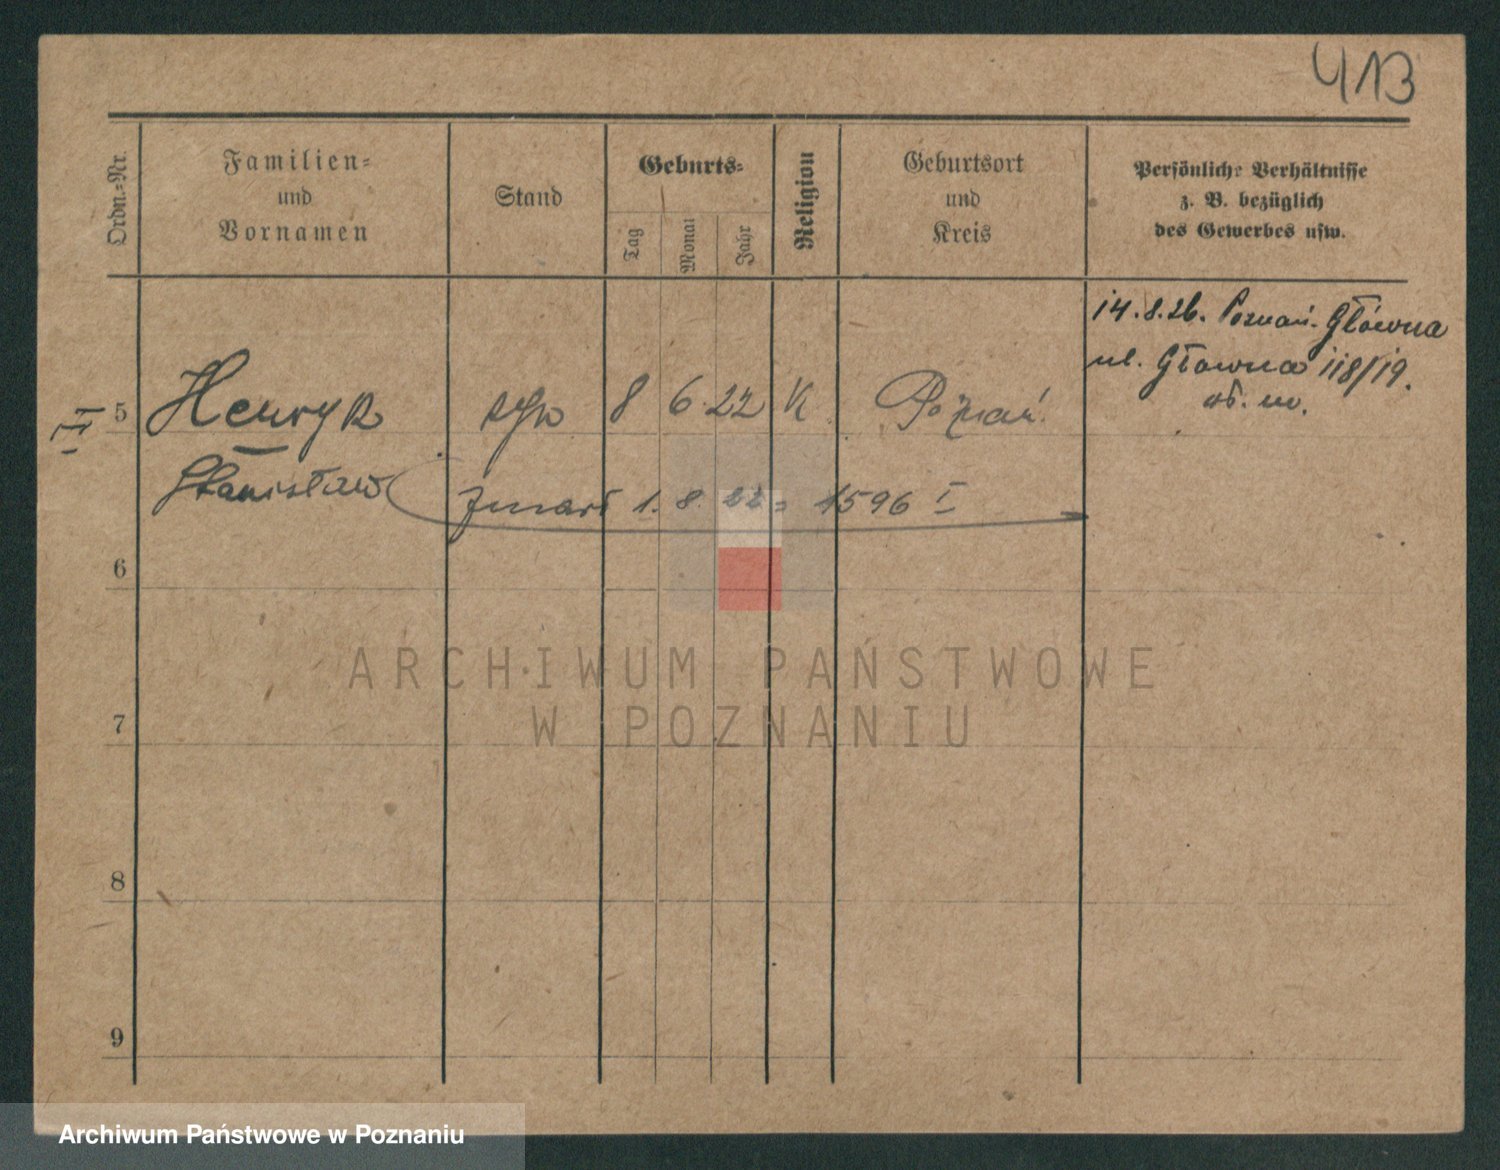 413
Ordn.=Nr.
Familien=
und
Vornamen
Stand
Geburts=
Tag
Monat
Jahr
Religion
Geburtsort
und
Kreis
Persönliche Verhältnisse
z. B. bezüglich
des Gewerbes usw.
14.8.26. Poznań. Główna
ul. Głowna 118/19.
III 5 Henryk syn 8 6 22 K Poznań.
Stanisław zmarł 1. 8. 22 = 1596 I
6
ARCHIWUM PAŃSTWOWE
W POZNANIU
7
8
9
Archiwum Państwowe w Poznaniu